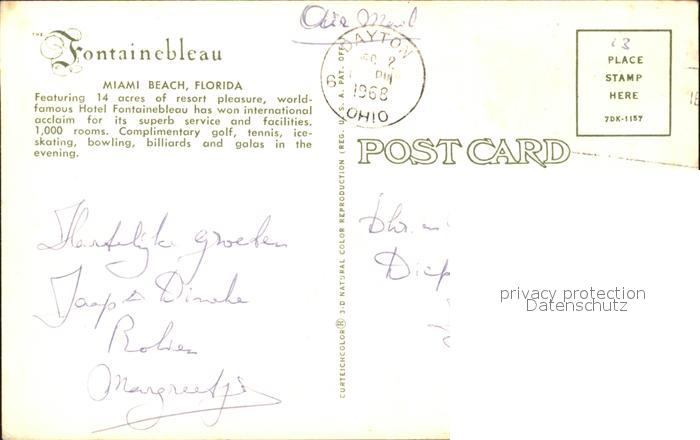 Air Mail
THE
Fontainebleau
MIAMI BEACH, FLORIDA
Featuring 14 acres of resort pleasure, world-
famous Hotel Fontainebleau has won international
acclaim for its superb service and facilities.
1,000 rooms. Complimentary golf, tennis, ice-
skating, bowling, billiards and galas in the
evening.
DAYTON
2
PM
1968
OHIO
13
PLACE
STAMP
HERE
7DK-1157
POST CARD
CURTEICHCOLOR® 3-D NATURAL COLOR REPRODUCTION (REG. U.S.A. PAT. OFF.
Hartelijke groeten
Jaap & Dineke
Robien
Margreetje
Dhr. en
Diep
privacy protection
Datenschutz